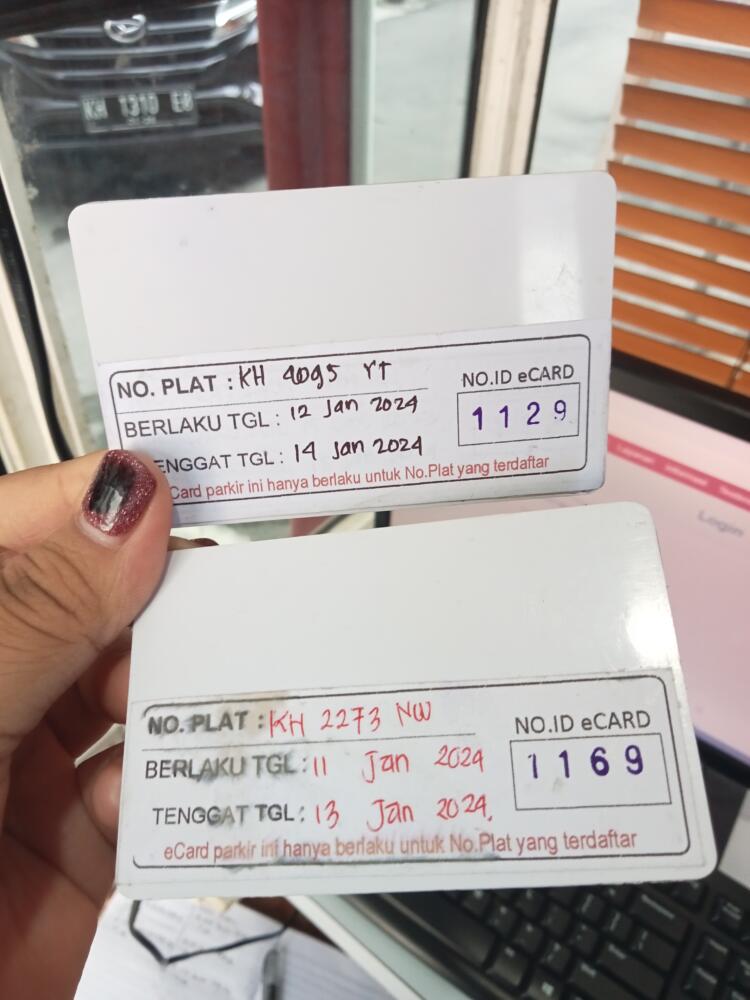 KH 1310 E
NO. PLAT : KH 4095 YT
BERLAKU TGL : 12 Jan 2024
ENGGAT TGL : 14 Jan 2024
Card parkir ini hanya berlaku untuk No.Plat yang terdaftar
NO.ID eCARD
1129
Login
NO. PLAT : KH 2273 NW
BERLAKU TGL : 11 Jan 2024
TENGGAT TGL : 13 Jan 2024.
eCard parkir ini hanya berlaku untuk No.Plat yang terdaftar
NO.ID eCARD
1169